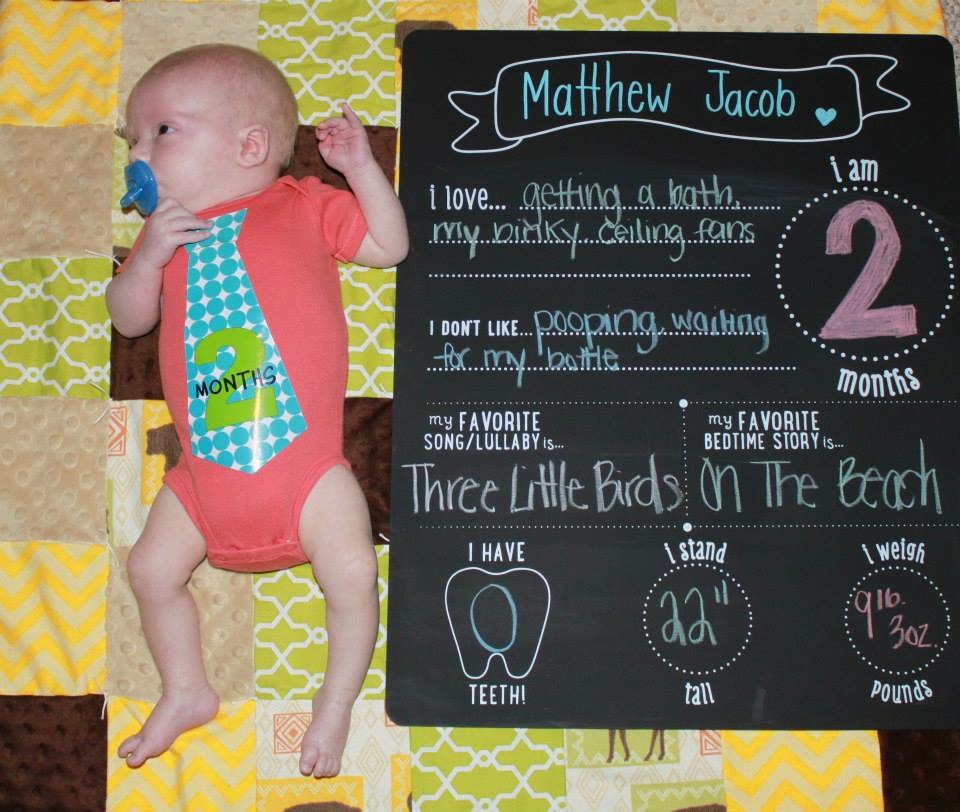 Matthew Jacob
i love... getting a bath,
my binky ceiling fans
i am
2
months
I DON'T LIKE... pooping, waiting
for my bottle
my FAVORITE
SONG/LULLABY is...
Three Little Birds
my FAVORITE
BEDTIME STORY is...
On The Beach
I HAVE
0
TEETH!
i stand
22"
tall
i weigh
9 lb.
3oz.
pounds
2
MONTHS